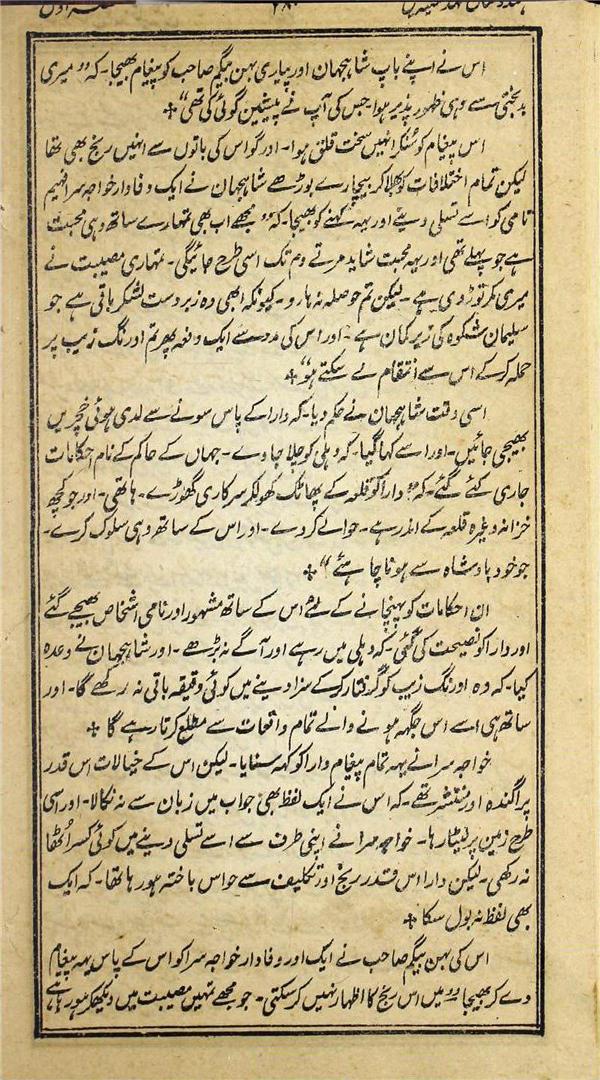 اس نے اپنے باپ شاہجہان اور پیاری بہن بیگم صاحب کو پیغام بھیجا۔ کہ ”میری
بدبختی سے وہی ظہور پذیر ہوا۔ جس کی آپ نے پیشین گوئی کی تھی“ ✣
اس پیغام کو سُنکر انہیں سخت قلق ہوا۔ اور گو اس کی باتوں سے انہیں رنج بھی تھا
لیکن تمام اختلافات کو بھلا کر بیچارے بوڑھے شاہجہان نے ایک وفادار خواجہ سرا فہیم
نامی کو اسے تسلی دینے اور یہہ کہنے کو بھیجا۔ کہ ”مجھے اب بھی تمہارے ساتھ وہی محبت
ہے جو پہلے تھی اور یہہ محبت شاید مرتے دم تک اسی طرح جائیگی۔ تمہاری مصیبت نے
میری کمر توڑ دی ہے۔ لیکن تم حوصلہ نہ ہارو۔ کیونکہ ابھی وہ زبردست لشکر باقی ہے جو
سلیمان شکوہ کی زیر کمان ہے۔ اور اس کی مدد سے ایک دفعہ پھر تم اورنگ زیب پر
حملہ کر کے اس سے انتقام لے سکتے ہو“ ✣
اسی وقت شاہجہان نے حکم دیا۔ کہ دارا کے پاس سونے سے لدی ہوئی خچریں
بھیجی جائیں۔ اور اسے کہا گیا۔ کہ دہلی کو چلا جاوے۔ جہاں کے حاکم کے نام احکامات
جاری کئے گئے۔ کہ ”دارا کو قلعہ کے پھاٹک کھولکر سرکاری گھوڑے۔ ہاتھی۔ اور جو کچھ
خزانہ وغیرہ قلعہ کے اندر ہے۔ حوالے کر دے۔ اور اس کے ساتھ وہی سلوک کرے۔
جو خود بادشاہ سے ہونا چاہئے“ ✣
ان احکامات کو پہنچانے کے لئے اس کے ساتھ مشہور اور نامی اشخاص بھیجے گئے
اور دارا کو نصیحت کی گئی۔ کہ دہلی میں رہے اور آگے نہ بڑھے۔ اور شاہجہان نے وعدہ
کیا۔ کہ وہ اورنگ زیب کو گرفتار کر کے سزا دینے میں کوئی دقیقہ باقی نہ رکھے گا۔ اور
ساتھ ہی اسے اس جگہہ ہونے والے تمام واقعات سے مطلع کرتا رہے گا ✣
خواجہ سرا نے یہہ تمام پیغام دارا کو کہہ سنایا۔ لیکن اس کے خیالات اس قدر
پراگندہ اور منتشر تھے۔ کہ اس نے ایک لفظ بھی جواب میں زبان سے نہ نکالا۔ اور اسی
طرح زمین پر لیٹا رہا۔ خواجہ سرا نے اپنی طرف سے اسے تسلی دینے میں کوئی کسر اُٹھا
نہ رکھی۔ لیکن دارا اس قدر رنج اور تکلیف سے حواس باختہ ہو رہا تھا۔ کہ ایک
بھی لفظ نہ بول سکا ✣
اس کی بہن بیگم صاحب نے ایک اور وفادار خواجہ سرا کو اس کے پاس یہہ پیغام
دے کر بھیجا ”میں اس رنج کا اظہار نہیں کر سکتی۔ جو مجھے تمہیں مصیبت میں دیکھکر ہو رہا ہے